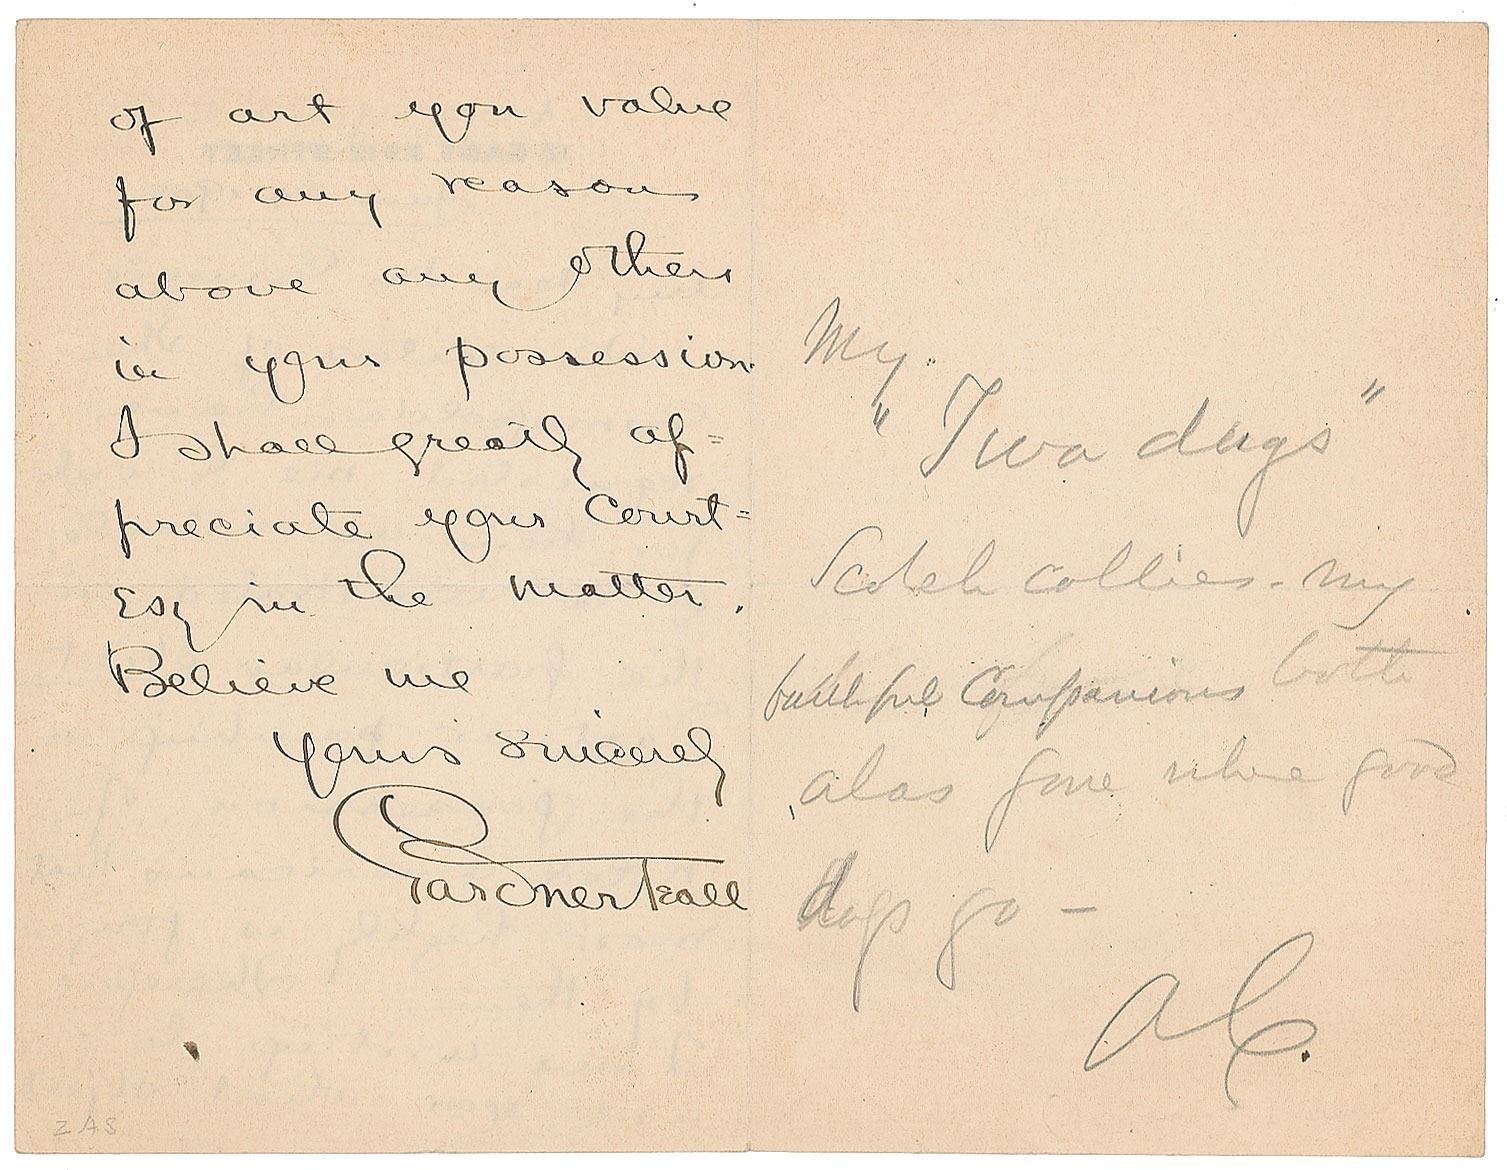 of art you value
for any reason
above any others
in your possession.
I shall greatly ap=
preciate your Court=
esy in the matter.
Believe me
Yours Sincerely
Gardner Teall
ZAS
My
"Twa dugs"
Scotch collies - my
faithful Companions both
alas gone where good
dogs go —
AC.